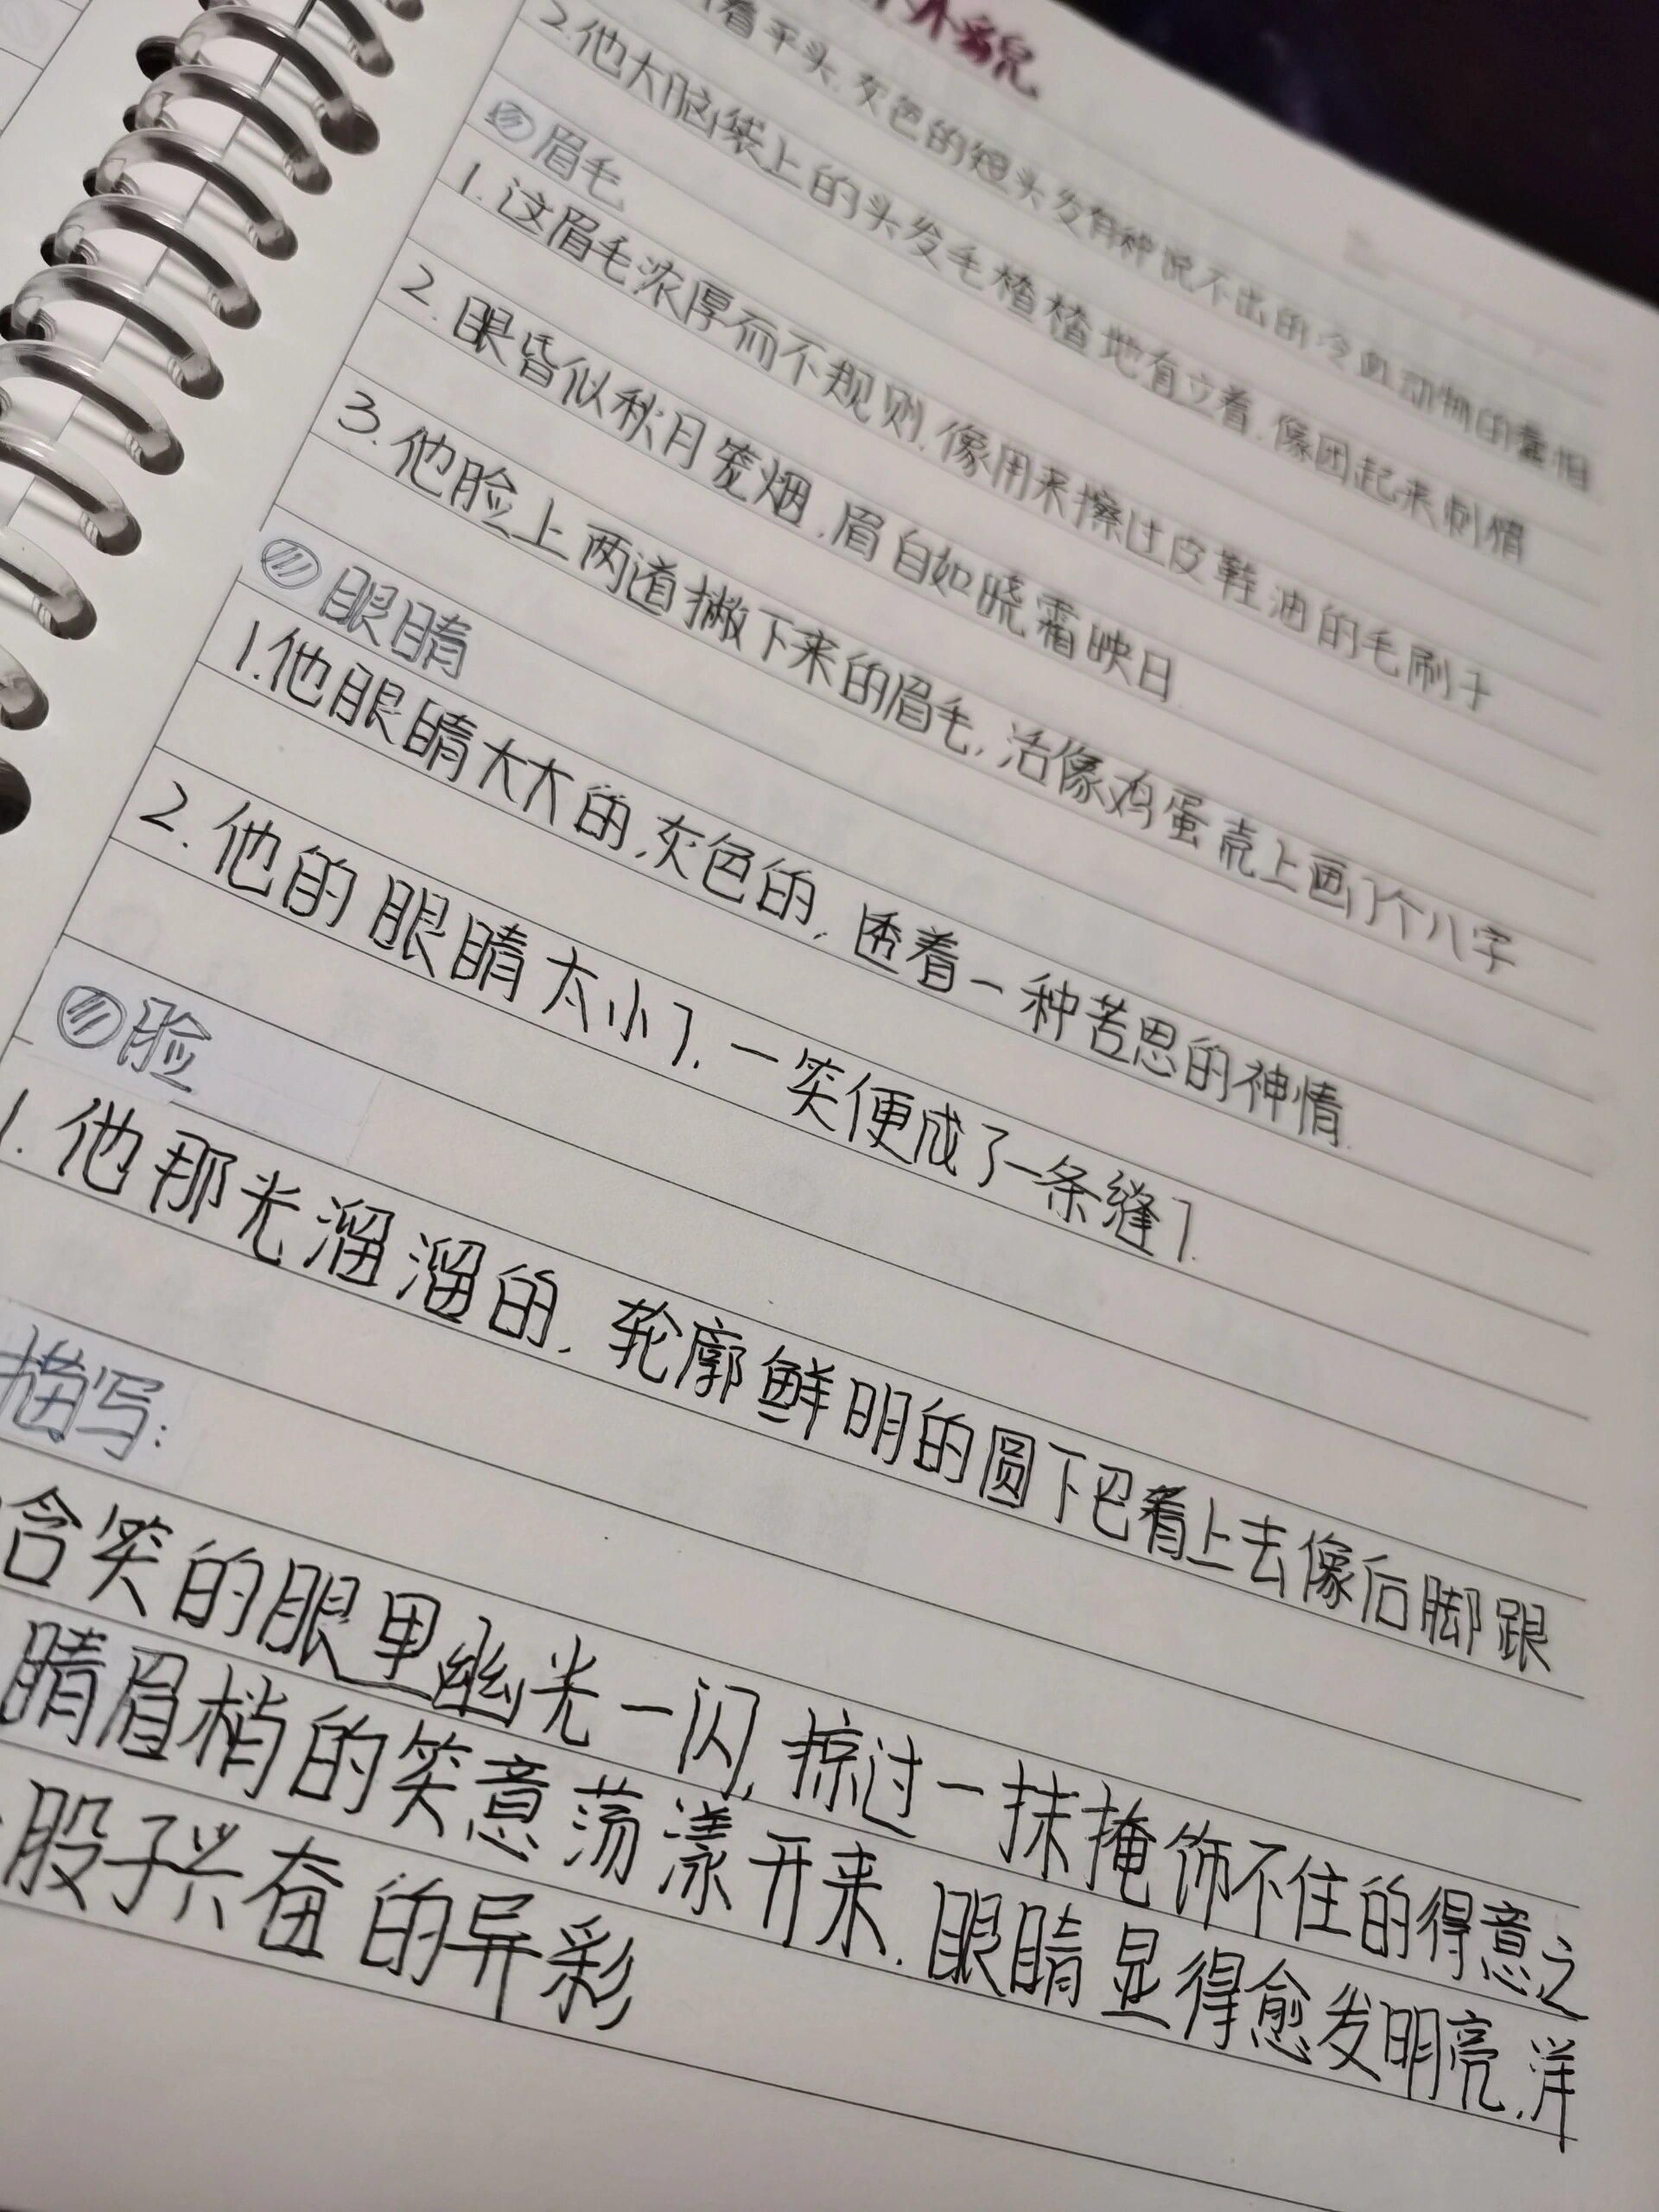 外貌
着平头,灰色的短头发有种说不出的冷血动物的
2.他大脑袋上的头发毛楂楂地直立着,像团起来刺猬
眉毛
1.这眉毛浓厚而不规则,像用来擦过皮鞋油的毛刷子
2.眼昏似秋月笼烟,眉自如晓霜映日.
3.他脸上两道撇下来的眉毛,活像鸡蛋壳上画了个八字
眼睛
1.他眼睛大大的,灰色的,透着一种苦思的神情.
2.他的眼睛太小了.一笑便成了一条缝了.
脸
1.他那光溜溜的,轮廓鲜明的圆下巴看上去像后脚跟
描写:
含笑的眼里幽光一闪,掠过一抹掩饰不住的得意之
睛眉梢的笑意荡漾开来.眼睛显得愈发明亮,洋
股子兴奋的异彩